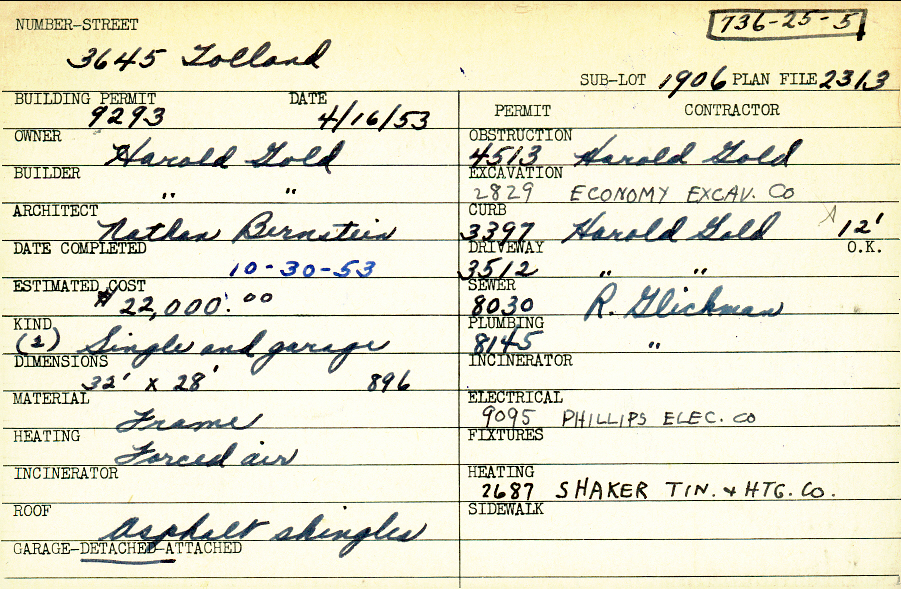 736-25-5
NUMBER-STREET
3645 Tolland
SUB-LOT 1906 PLAN FILE 2313
BUILDING PERMIT DATE
9293 4/16/53
OWNER
Harold Gold
BUILDER
" "
ARCHITECT
Nathan Bernstein
DATE COMPLETED
10-30-53
ESTIMATED COST
$22,000.00
KIND
(2) Single and garage
DIMENSIONS
32' x 28' 896
MATERIAL
Frame
HEATING
Forced air
INCINERATOR
ROOF
Asphalt shingles
GARAGE-DETACHED-ATTACHED
PERMIT CONTRACTOR
OBSTRUCTION
4513 Harold Gold
EXCAVATION
2829 ECONOMY EXCAV. CO
CURB
3397 Harold Gold 12'
DRIVEWAY O.K.
3512 " "
SEWER
8030 R. Glickman
PLUMBING
8145 "
INCINERATOR
ELECTRICAL
9095 PHILLIPS ELEC. CO
FIXTURES
HEATING
2687 SHAKER TIN. & HTG. CO.
SIDEWALK